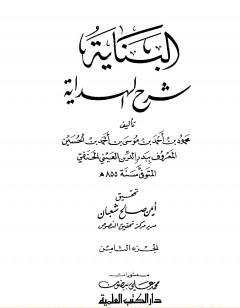 البناية
شرح الهداية
تأليف
محمود بن أحمد بن موسى بن أحمد بن الحسين
المعروف ببدر الدين العيني الحنفي
المتوفى سنة ٨٥٥ هـ
تحقيق
أيمن صالح شعبان
الجزء الثامن
منشورات
محمد علي بيضون
دار الكتب العلمية